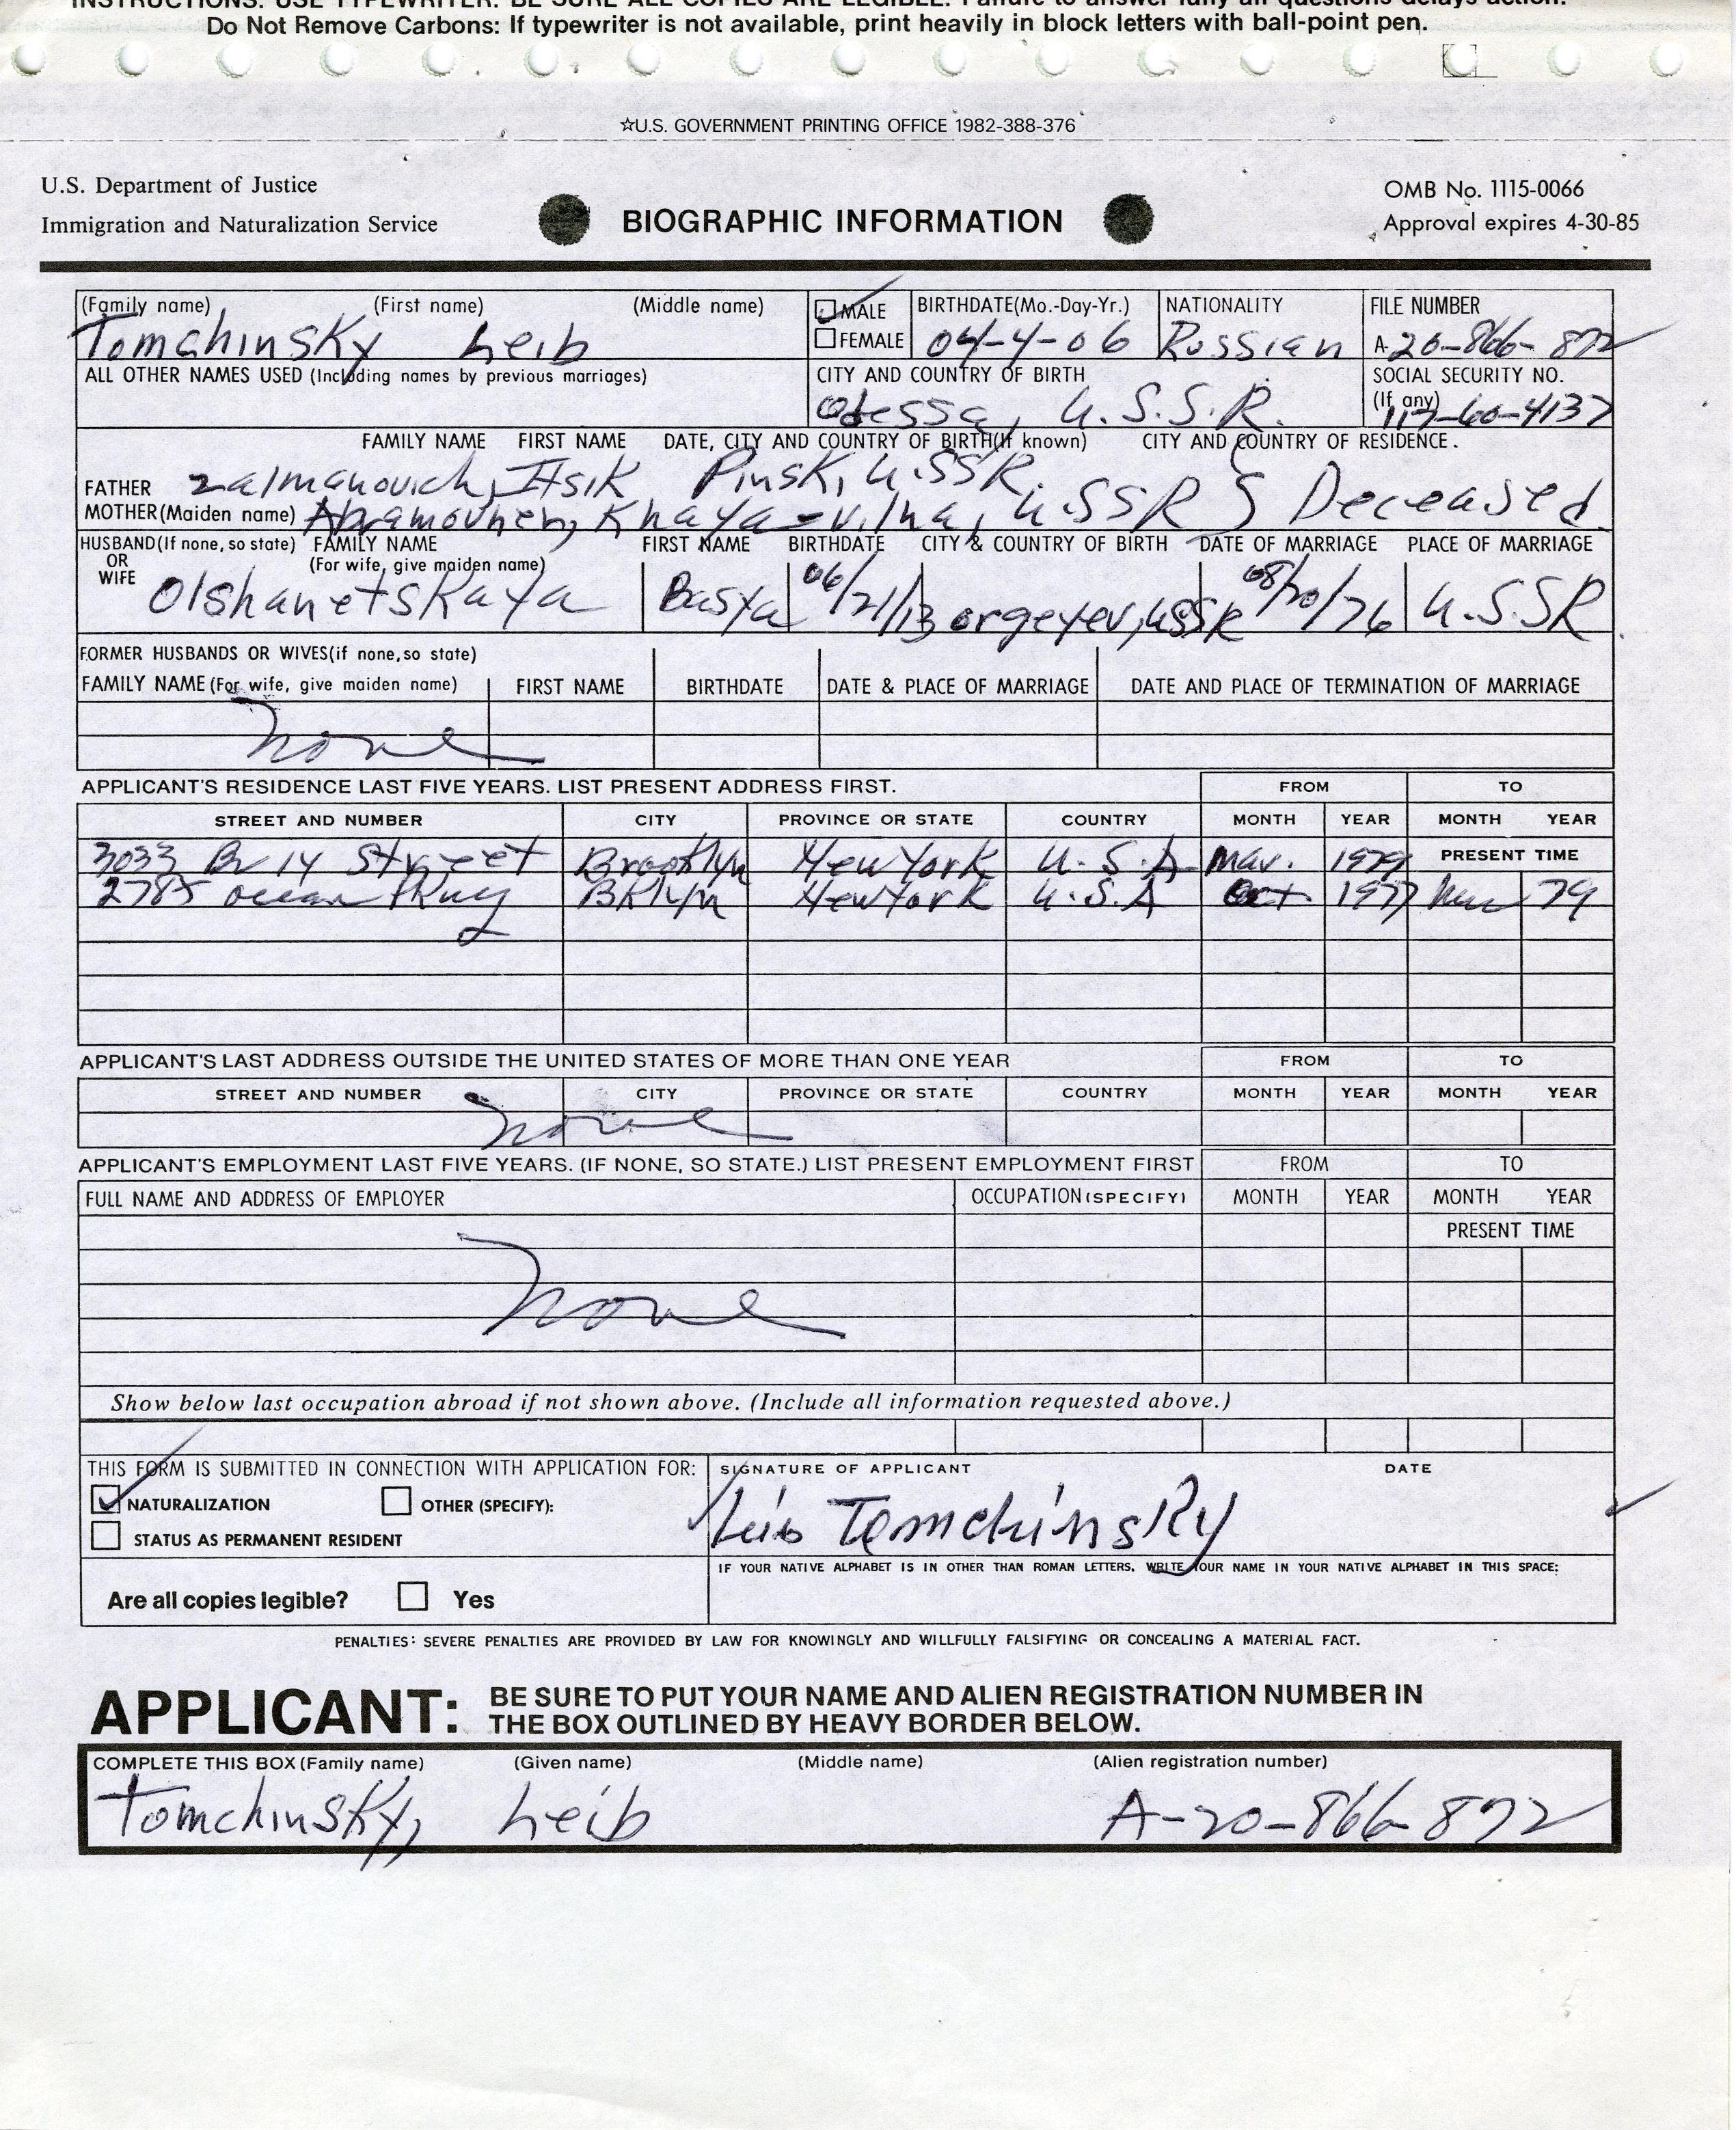 INSTRUCTIONS: USE TYPEWRITER. BE SURE ALL COPIES ARE LEGIBLE. Failure to answer fully all questions delays action.
Do Not Remove Carbons: If typewriter is not available, print heavily in block letters with ball-point pen.
☆U.S. GOVERNMENT PRINTING OFFICE 1982-388-376
U.S. Department of Justice
Immigration and Naturalization Service
BIOGRAPHIC INFORMATION
OMB No. 1115-0066
Approval expires 4-30-85
(Family name) (First name) (Middle name) MALE BIRTHDATE(Mo.-Day-Yr.) NATIONALITY FILE NUMBER
Tomchinsky Leib FEMALE 04-4-06 Russian A-20-866-872
ALL OTHER NAMES USED (Including names by previous marriages) CITY AND COUNTRY OF BIRTH SOCIAL SECURITY NO.
Odessa, U.S.S.R. (If any) 113-60-4137
FAMILY NAME FIRST NAME DATE, CITY AND COUNTRY OF BIRTH(If known) CITY AND COUNTRY OF RESIDENCE.
FATHER Zalmanovich, Itsik Pinsk, U.SSR.
MOTHER(Maiden name) Khaya - Vilna, U.SSR Deceased
HUSBAND(If none, so state) FAMILY NAME FIRST NAME BIRTHDATE CITY & COUNTRY OF BIRTH DATE OF MARRIAGE PLACE OF MARRIAGE
OR (For wife, give maiden name)
WIFE Olshanetskaya Basya 06/21/13 orgeyev, USSR 08/20/76 U.S.SR
FORMER HUSBANDS OR WIVES(if none, so state)
FAMILY NAME (For wife, give maiden name) FIRST NAME BIRTHDATE DATE & PLACE OF MARRIAGE DATE AND PLACE OF TERMINATION OF MARRIAGE
None
APPLICANT'S RESIDENCE LAST FIVE YEARS. LIST PRESENT ADDRESS FIRST. FROM TO
STREET AND NUMBER CITY PROVINCE OR STATE COUNTRY MONTH YEAR MONTH YEAR
3033 Br 14 Street Brooklyn New York U.S.A Mar. 1979 PRESENT TIME
2785 ocean Pkwy BKlyn New York U.S.A Oct 1977 Mar 79
APPLICANT'S LAST ADDRESS OUTSIDE THE UNITED STATES OF MORE THAN ONE YEAR FROM TO
STREET AND NUMBER CITY PROVINCE OR STATE COUNTRY MONTH YEAR MONTH YEAR
None
APPLICANT'S EMPLOYMENT LAST FIVE YEARS. (IF NONE, SO STATE.) LIST PRESENT EMPLOYMENT FIRST FROM TO
FULL NAME AND ADDRESS OF EMPLOYER OCCUPATION (SPECIFY) MONTH YEAR MONTH YEAR
PRESENT TIME
None
Show below last occupation abroad if not shown above. (Include all information requested above.)
THIS FORM IS SUBMITTED IN CONNECTION WITH APPLICATION FOR: SIGNATURE OF APPLICANT DATE
NATURALIZATION OTHER (SPECIFY): Leib Tomchinsky
STATUS AS PERMANENT RESIDENT
IF YOUR NATIVE ALPHABET IS IN OTHER THAN ROMAN LETTERS, WRITE YOUR NAME IN YOUR NATIVE ALPHABET IN THIS SPACE:
Are all copies legible? Yes
PENALTIES: SEVERE PENALTIES ARE PROVIDED BY LAW FOR KNOWINGLY AND WILLFULLY FALSIFYING OR CONCEALING A MATERIAL FACT.
APPLICANT: BE SURE TO PUT YOUR NAME AND ALIEN REGISTRATION NUMBER IN
THE BOX OUTLINED BY HEAVY BORDER BELOW.
COMPLETE THIS BOX (Family name) (Given name) (Middle name) (Alien registration number)
Tomchinsky, Leib A-20-866-872